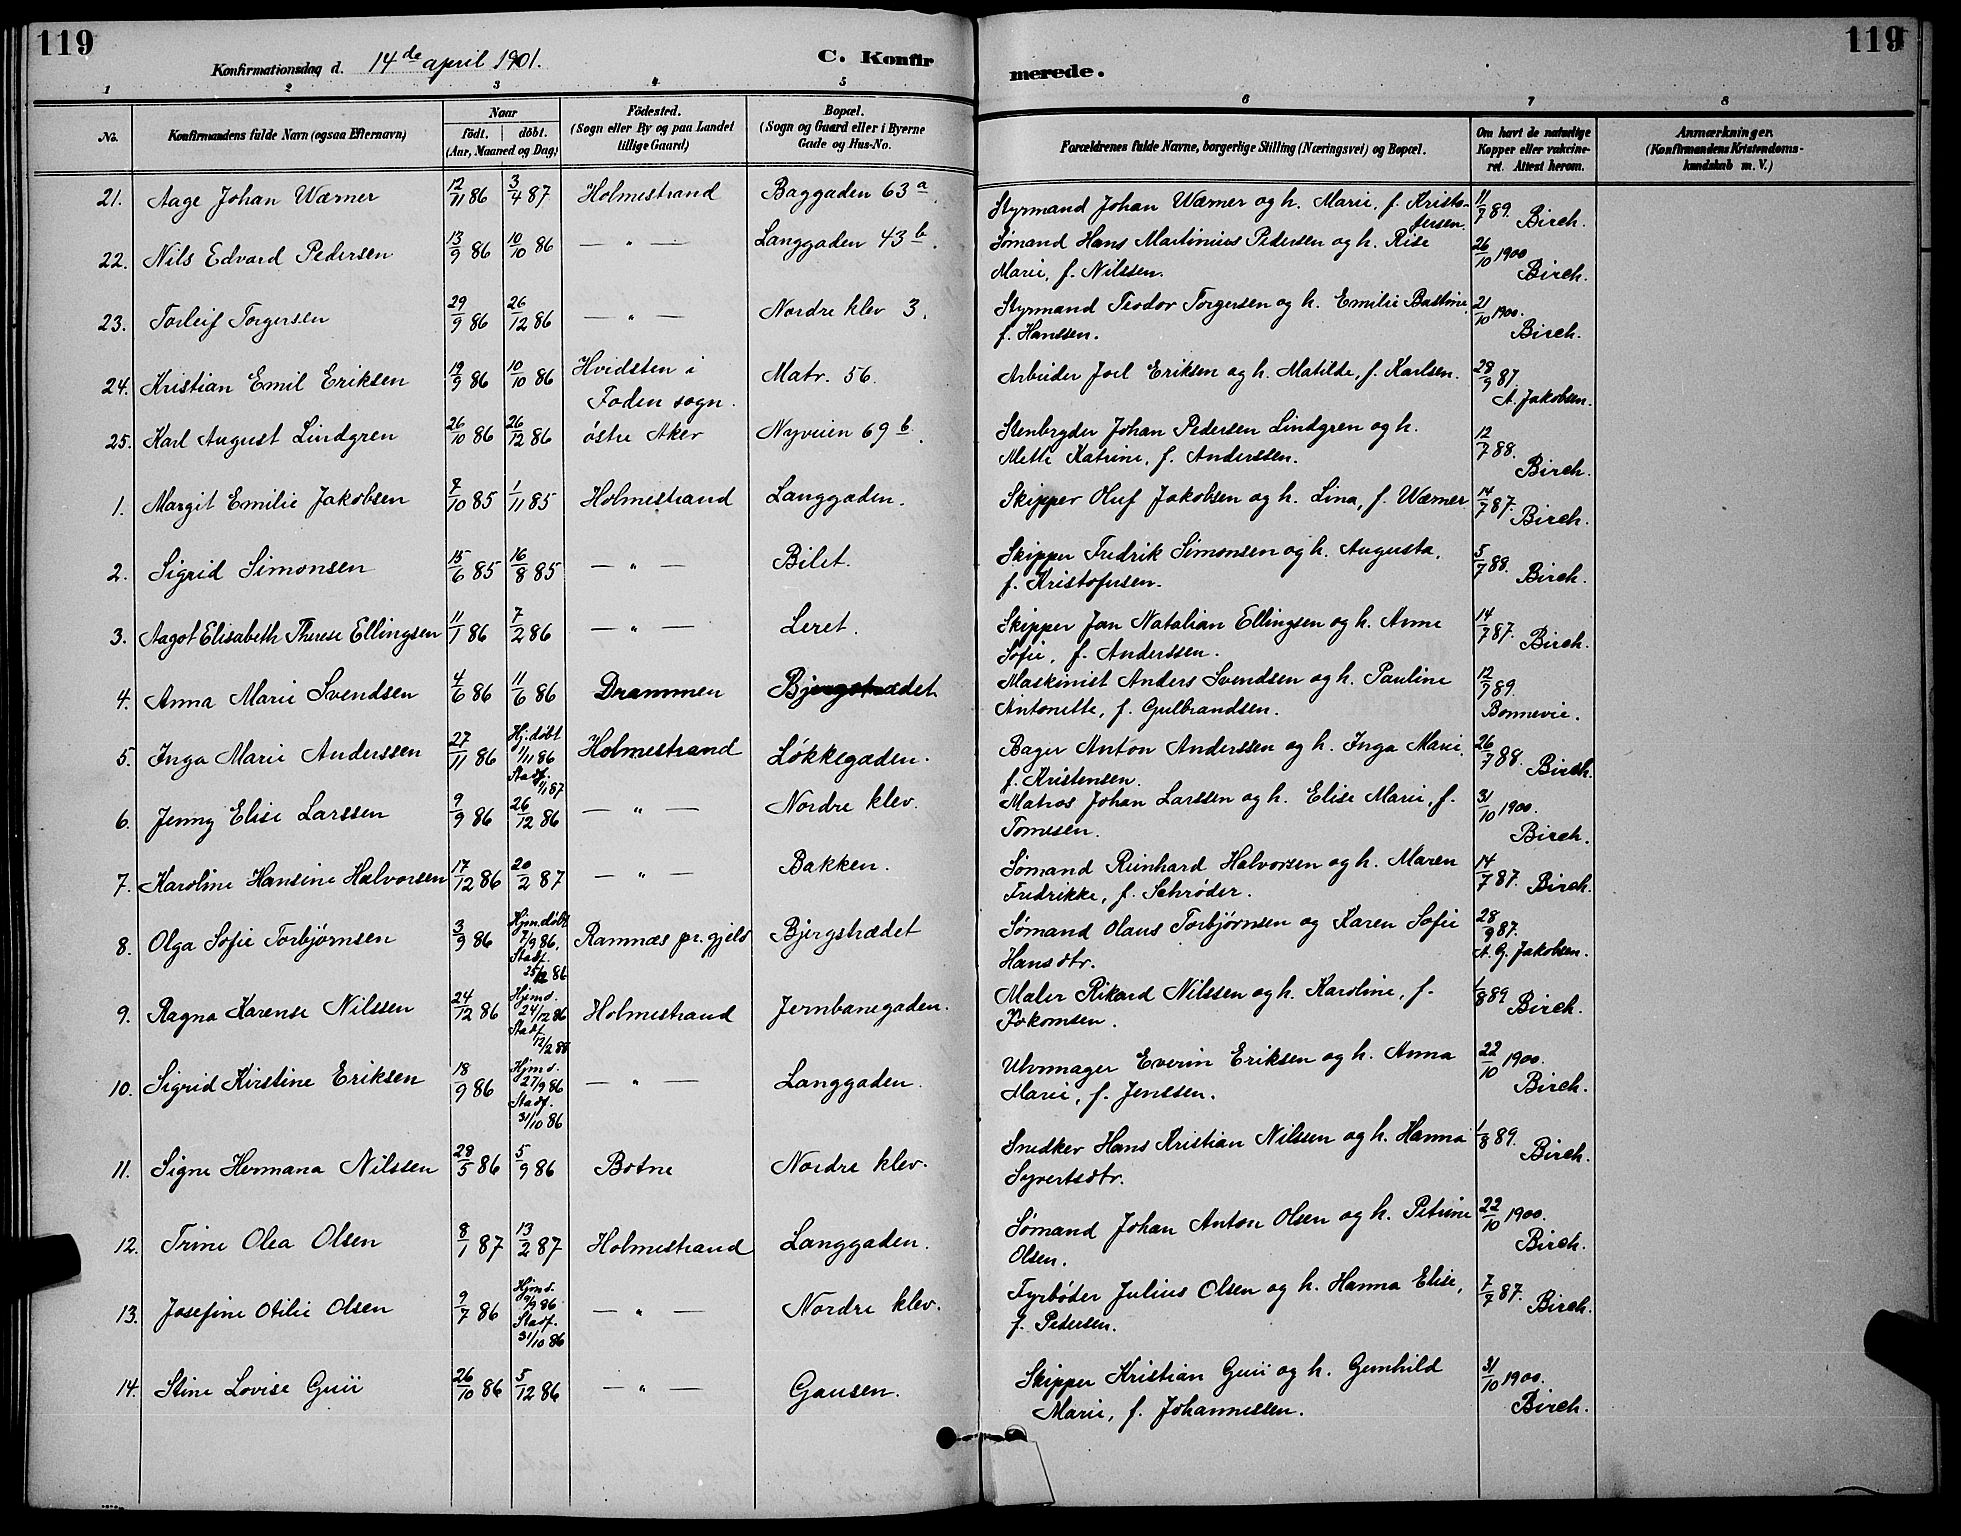 119
Konfirmationsdag d. 14de april 1901.
C. Konfirmerede.
119
1 2 3 4 5 6 7 8
No.
Konfirmandens fulde Navn (ogsaa Efternavn)
Naar
födt. döbt.
(Aar, Maaned og Dag)
Födested.
(Sogn eller By og paa Landet
tillige Gaard)
Bopæl.
(Sogn og Gaard eller i Byerne
Gade og Hus-No.
Forældrenes fulde Navne, borgerlige Stilling (Næringsvei) og Bopæl.
Om havt de naturlige
Kopper eller vakcine-
ret. Attest herom.
Anmærkninger.
(Konfirmandens Kristendoms-
kundskab m. V.)
21. Aage Johan Wærner 12/11 86 3/4 87 Holmestrand Baggaden 63 a. Styrmand Johan Wærner og h. Marie, f. Kristo-
fersen. 11/7 89. Birch.
22. Nils Edvard Pedersen 13/9 86 10/10 86 — " — Langgaden 43 b. Sømand Hans Martinius Pedersen og h. Rise
Marie, f. Nilssen. 26/10 1900 Birch.
23. Torleif Torgersen 29/9 86 26/12 86 — " — Nordre klev 3. Styrmand Teodor Torgersen og h. Emilie Bastine,
f. Hanssen. 21/10 1900. Birch.
24. Kristian Emil Eriksen 19/9 86 10/10 86 Hvidsten i
Foden sogn. Matr. 56. Arbeider Joel Eriksen og h. Matilde, f. Karlsen. 28/9 87. A. Jakobsen.
25. Karl August Lindgren 26/10 86 26/12 86 østre Aker Nyveien 69 b. Stenbryder Johan Pedersen Lindgren og h.
Mette Katrine, f. Anderssen. 12/7 88. Birch.
1. Margit Emilie Jakobsen 7/10 85 1/11 85 Holmestrand Langgaden. Skipper Oluf Jakobsen og h. Lina, f. Wærner 14/7 87. Birch.
2. Sigrid Simonsen 15/6 85 16/8 85 — " — Bilet. Skipper Fredrik Simonsen og h. Augusta,
f. Kristofersen. 5/7 88. Birch.
3. Aagot Elisabeth Therese Ellingsen 11/1 86 7/2 86 — " — Leret. Skipper Jan Natalian Ellingsen og h. Anne
Sofie, f. Anderssen. 14/7 87. Birch.
4. Anna Marie Svendsen 4/6 86 11/6 86 Drammen Bjergstrædet Maskinist Anders Svendsen og h. Pauline
Antonette, f. Gulbrandsen. 12/9 89. Bonnevie.
5. Inga Marie Anderssen 27/11 86 Hj.døbt
1/11 86
Stadf.
1/1 87 Holmestrand Løkkegaden. Bager Anton Anderssen og h. Inga Marie,
f. Kristensen. 26/7 88. Birch.
6. Jenny Elise Larssen 9/9 86 26/12 86 — " — Nordre klev. Matros Johan Larssen og h. Elise Marie, f.
Tomesen. 31/10 1900. Birch.
7. Karoline Hansine Halvorsen 17/12 86 20/2 87 — " — Bakken. Sømand Reinhard Halvorsen og h. Maren
Fredrikke, f. Schrøder. 14/7 87. Birch.
8. Olga Sofie Torbjørnsen 3/9 86 Hjemdøbt
7/9 86.
Stadf.
25/12 86 Ramnæs pr.gjeld Bjergstrædet Sømand Olaus Torbjørnsen og Karen Sofie
Hansdtr. 28/9 87. A. G. Jakobsen.
9. Ragna Karense Nilssen 24/12 86 Hjmd.
24/12 86
Stadf.
12/2 88 Holmestrand Jernbanegaden. Maler Rikard Nilssen og h. Karoline, f.
1/8 89 Birch.
10. Sigrid Kirstine Eriksen 18/9 86 Hjmd.
27/9 86
Stadf.
31/10 86 — " — Langgaden. Uhrmager Everin Eriksen og h. Anna
Marie, f. Jenssen. 22/10 1900. Birch.
11. Signe Hermana Nilssen 28/5 86 5/9 86 Botne Nordre klev. Snedker Hans Kristian Nilssen og h. Hanna
Syvertsdtr. 1/8 89. Birch.
12. Trine Olea Olsen 8/1 87 13/2 87 Holmestrand Langgaden. Sømand Johan Anton Olsen og h. Petrine
Olsen. 22/10 1900. Birch.
13. Josefine Otilie Olsen 9/7 86 Hjmd.
9/9 86
Stadf.
31/10 86 — " — Nordre klev. Fyrbøder Julius Olsen og h. Hanna Elise,
f. Pedersen. 7/7 87. Birch.
14. Stine Lovise Guii 26/10 86 5/12 86 — " — Gausen. Skipper Kristian Guii og h. Gunhild
Marie, f. Johannessen. 31/10 1900. Birch.